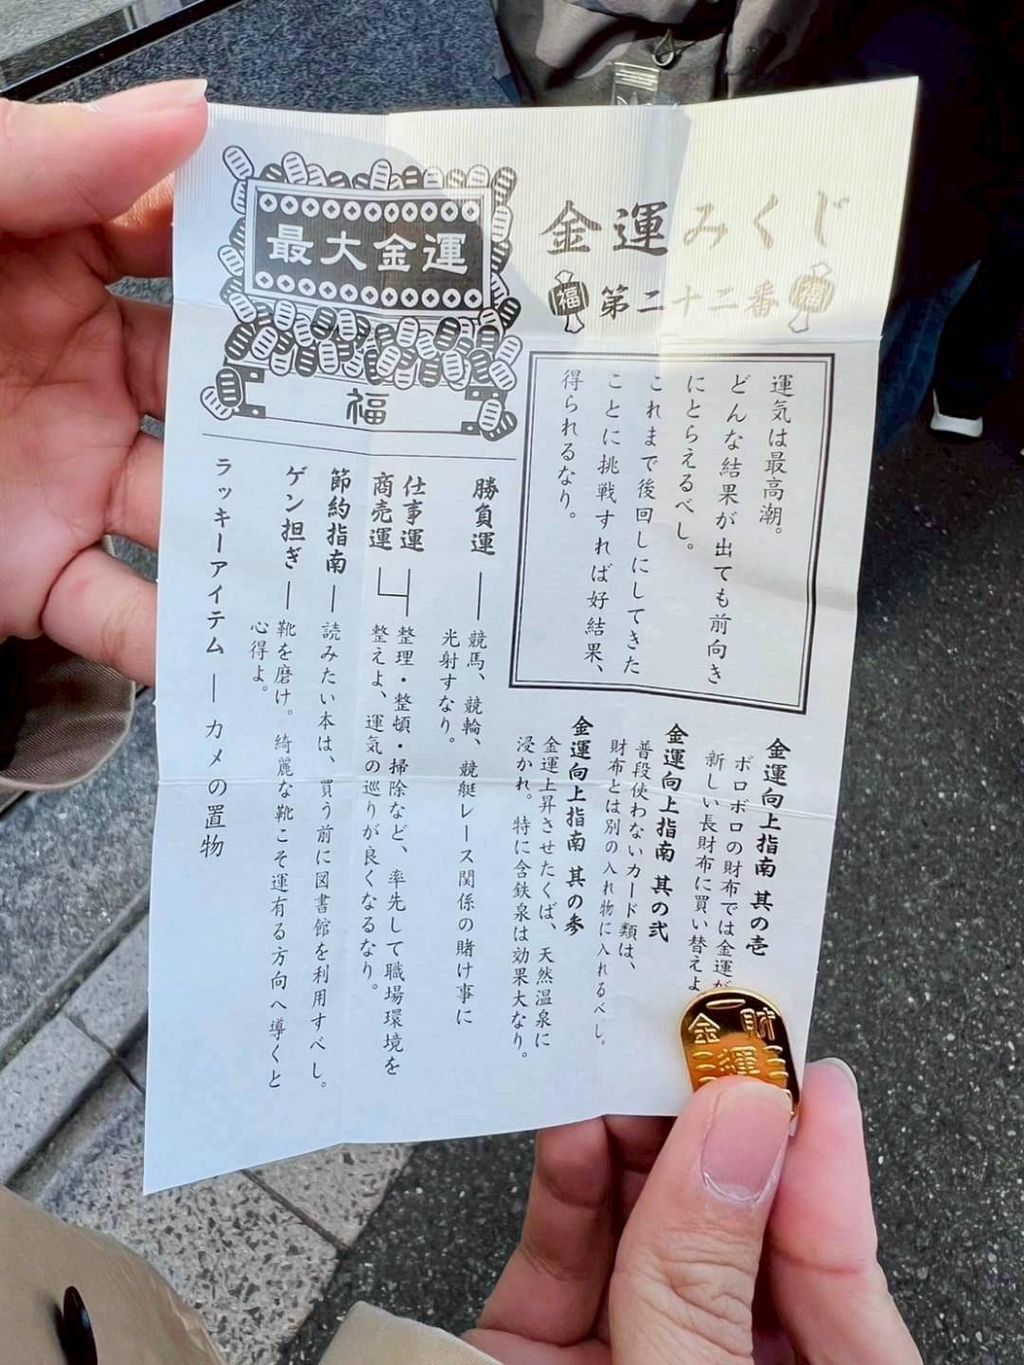 金運みくじ
福 第二十二番 福
運気は最高潮。
どんな結果が出ても前向き
にとらえるべし。
これまで後回しにしてきた
ことに挑戦すれば好結果、
得られるなり。
金運向上指南 其の壱
ボロボロの財布では金運が
新しい長財布に買い替えよ
金運向上指南 其の弐
普段使わないカード類は、
財布とは別の入れ物に入れるべし。
金運向上指南 其の参
金運上昇させたくば、天然温泉に
浸かれ。特に含鉄泉は効果大なり。
最大金運
福
勝負運
競馬、競輪、競艇レース関係の賭け事に
光射すなり。
仕事運
商売運
整理・整頓・掃除など、率先して職場環境を
整えよ、運気の巡りが良くなるなり。
節約指南
読みたい本は、買う前に図書館を利用すべし。
ゲン担ぎ
靴を磨け。綺麗な靴こそ運有る方向へ導くと
心得よ。
ラッキーアイテム
カメの置物
財
運
金